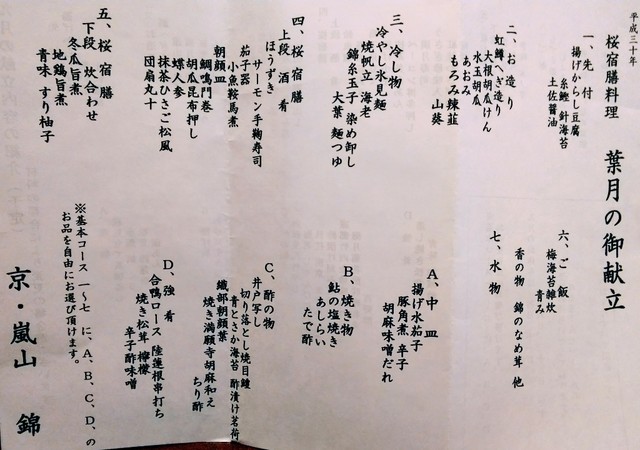 平成三十年
桜宿膳料理 葉月の御献立
一、先付
揚げからし豆腐
糸鰹 針海苔
土佐醤油
二、お造り
虹鱒へぎ造り
大根胡瓜けん
水玉胡瓜
あおみ
もろみ辣韮
山葵
三、冷し物
冷やし氷見麺
焼帆立 海老
錦糸玉子 染め卸し
大葉 麺つゆ
四、桜宿膳
上段 酒肴
ほうずき
サーモン手鞠寿司
茄子器
小魚鞍馬煮
朝顔皿
鯛鳴門巻
胡瓜昆布押し
蝶人参
抹茶ひさご松風
団扇丸十
五、桜宿膳
下段 炊合わせ
冬瓜旨煮
地鶏旨煮
青味 すり柚子
六、ご飯
梅海苔雑炊
青み
香の物 錦のなめ茸 他
七、水物
A、中皿
揚げ水茄子
豚角煮 辛子
胡麻味噌だれ
B、焼き物
鮎の塩焼き
あしらい
たで酢
C、酢の物
井戸写し
切り落とし焼目鱧
青とさか海苔 酢漬け茗荷
織部朝顔葉
焼き満願寺胡麻和え
ちり酢
D、強肴
合鴨ロース 陸蓮根串打ち
焼き松茸 檸檬
辛子酢味噌
※基本コース一〜七に、A、B、C、D、の
お品を自由にお選び頂けます。
京・嵐山 錦